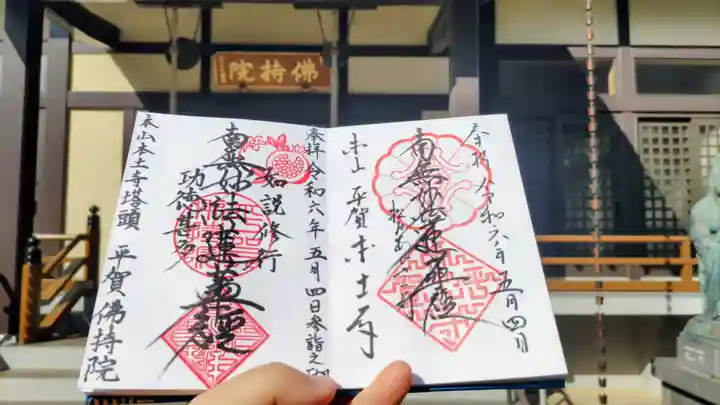 佛持院
奉拝 令和六年 五月四日
南無妙法蓮華経
本山 平賀 本土寺
奉拝 令和六年 五月四日参詣之砌
如説修行
南無妙法蓮華経
功徳甚多
本山本土寺塔頭 平賀佛持院